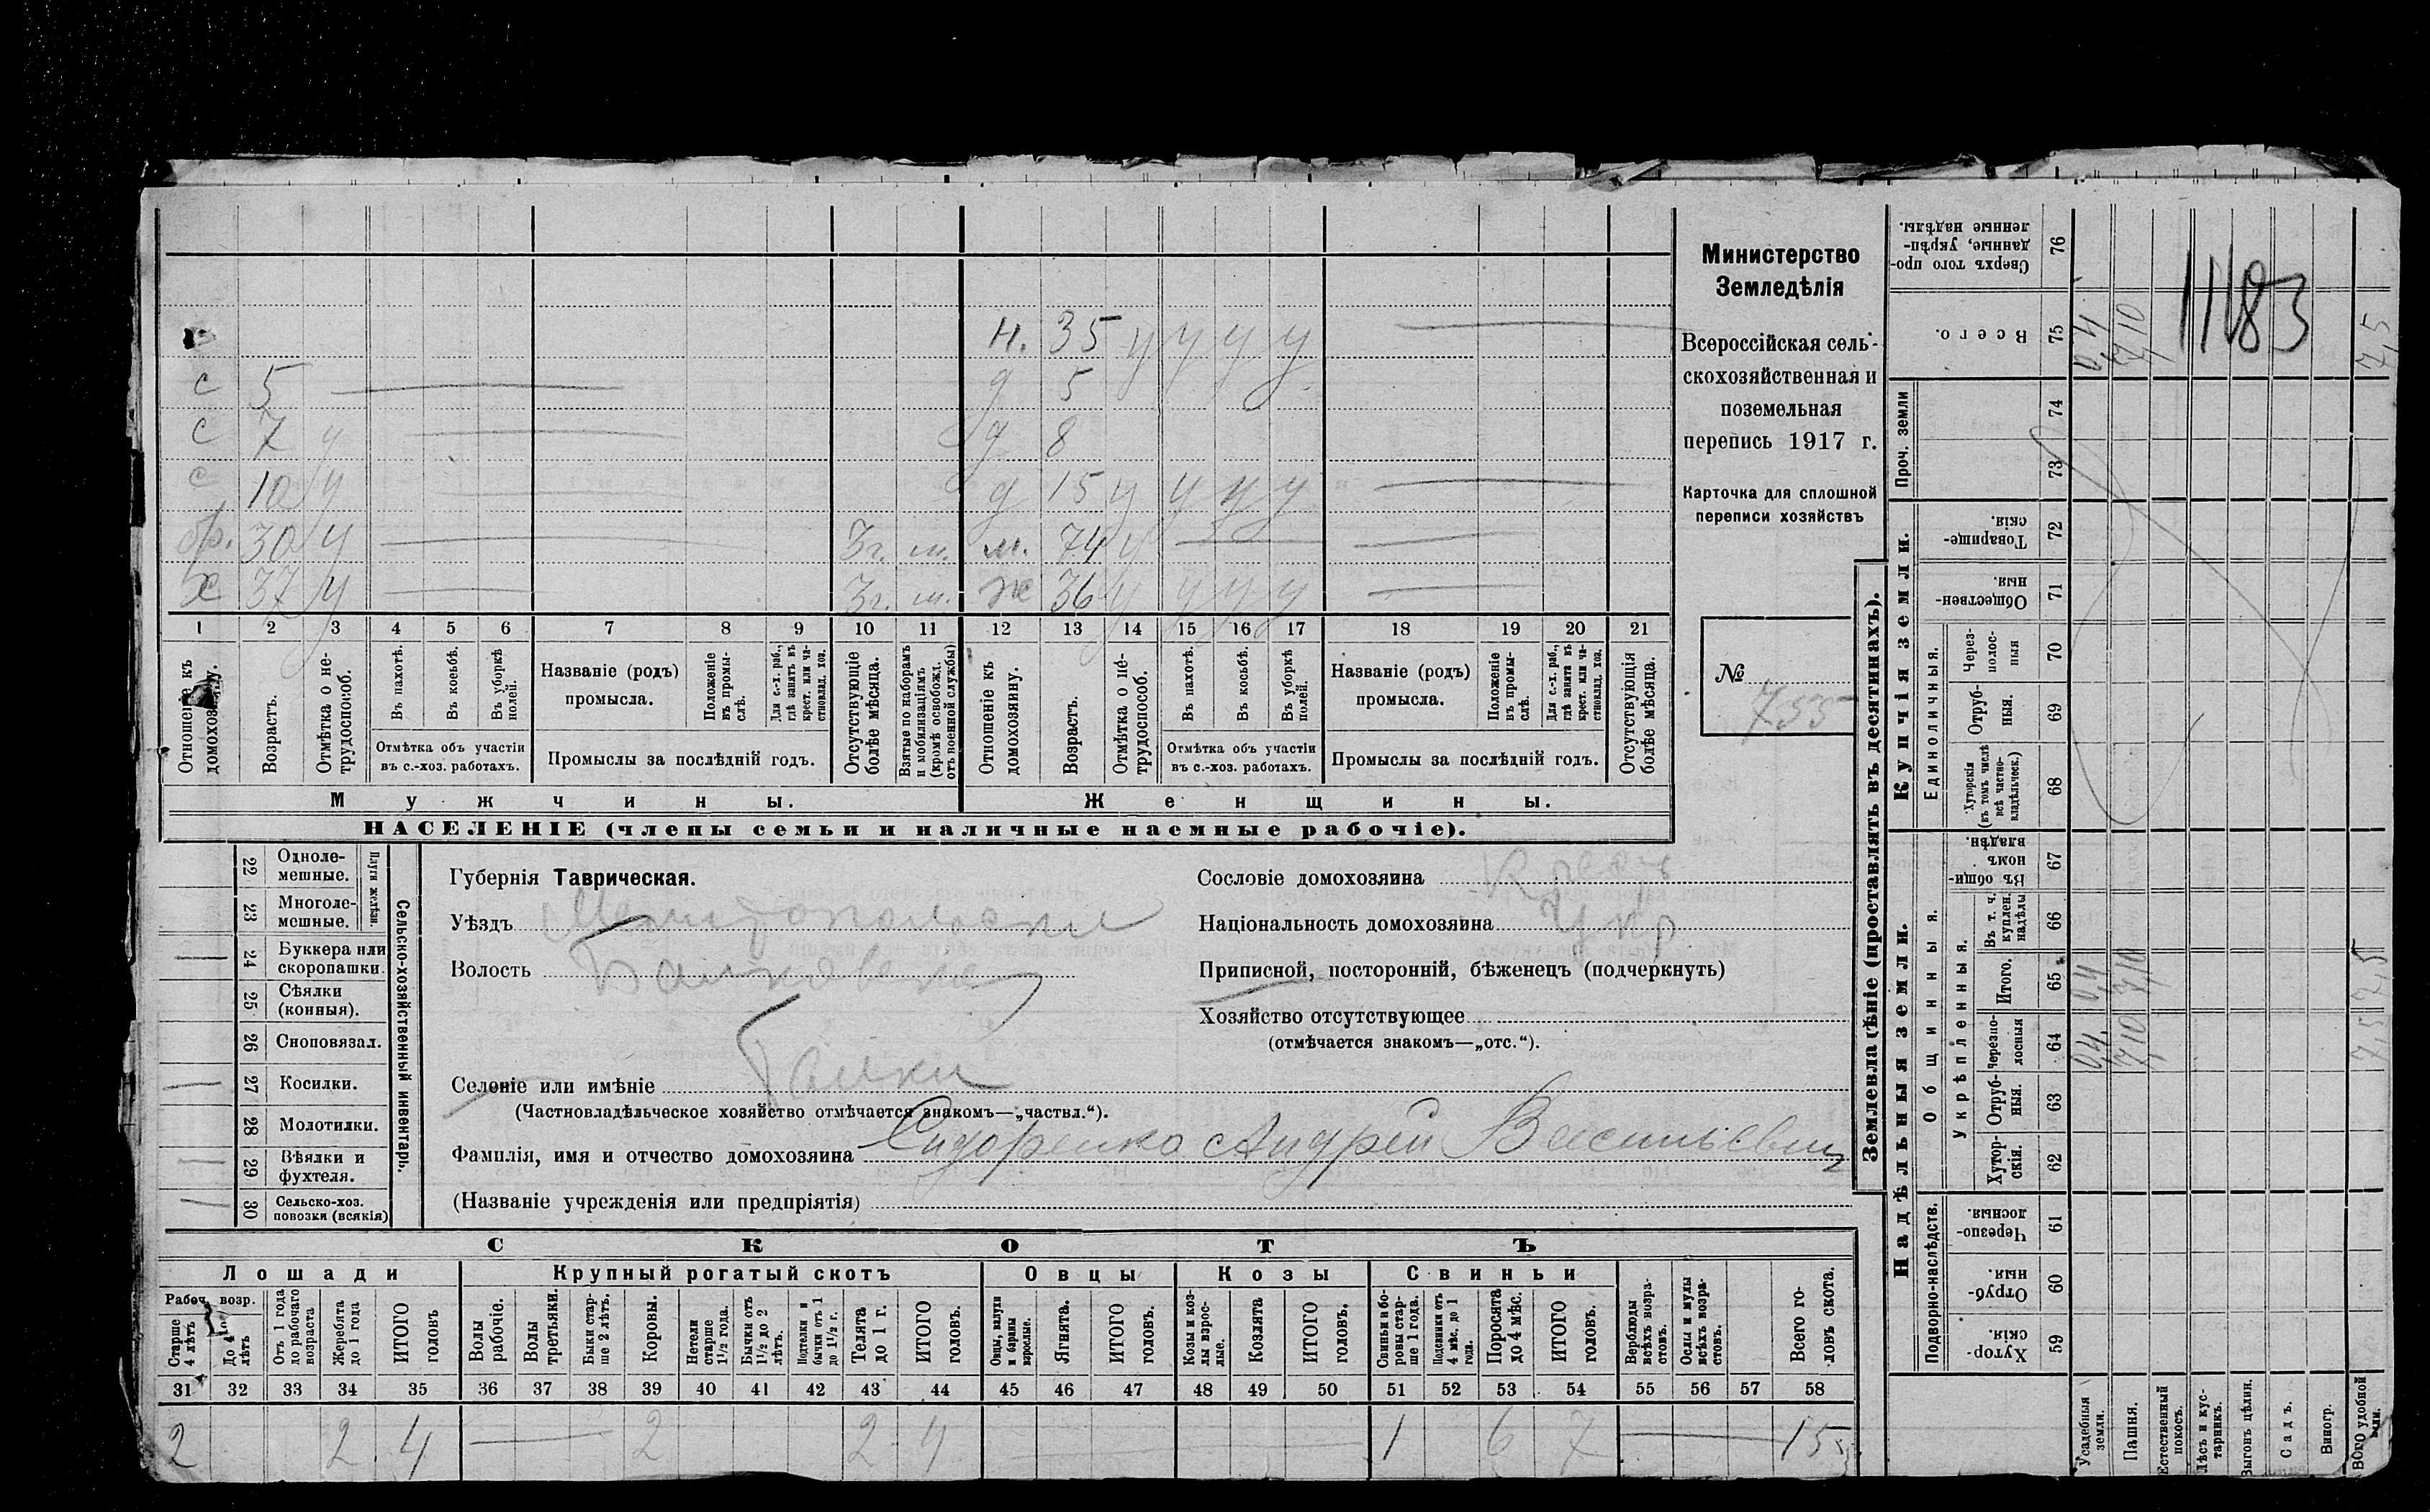 н. 35 у у у у
с 5 д 5
с 7 у д 8
с 10 у д 15 у у у у
бр. 30 у 3г. м. 74 у
х 37 у 3г. ж 36 у у у у
1 2 3 4 5 6 7 8 9 10 11 12 13 14 15 16 17 18 19 20 21
Отношеніе къ домохозяину.
Возрастъ.
Отмѣтка о нетрудоспособ.
Въ пахотѣ.
Въ косьбѣ.
Въ уборкѣ полей.
Отмѣтка объ участіи въ с.-хоз. работахъ.
Названіе (родъ) промысла.
Положеніе въ промыслѣ.
Для с.-х. раб., гдѣ занятъ въ крест. или частновлад. хоз.
Промыслы за послѣдній годъ.
Отсутствующіе болѣе мѣсяца.
Взятые по наборамъ и мобилизаціямъ (кромѣ освобожд. отъ военной службы)
Отношеніе къ домохозяину.
Возрастъ.
Отмѣтка о нетрудоспособ.
Въ пахотѣ.
Въ косьбѣ.
Въ уборкѣ полей.
Отмѣтка объ участіи въ с.-хоз. работахъ.
Названіе (родъ) промысла.
Положеніе въ промыслѣ.
Для с.-х. раб., гдѣ занятъ въ крест. или частновлад. хоз.
Промыслы за послѣдній годъ.
Отсутствующія болѣе мѣсяца.
Мужчины. Женщины.
НАСЕЛЕНІЕ (члены семьи и наличные наемные рабочіе).
Министерство
Земледѣлія
Всероссійская сель-
скохозяйственная и
поземельная
перепись 1917 г.
Карточка для сплошной
переписи хозяйствъ
№ 755
22 Одноле-мешные.
23 Многоле-мешные.
Плуги желѣзн.
24 Буккера или скоропашки.
25 Сѣялки (конныя).
26 Сноповязал.
27 Косилки.
28 Молотилки.
29 Вѣялки и фухтеля.
30 Сельско-хоз. повозки (всякія)
Сельско-хозяйственный инвентарь.
Губернія Таврическая.
Уѣздъ Мелитопольскій
Волость
Селеніе или имѣніе
(Частновладѣльческое хозяйство отмѣчается знакомъ—„частвл.“).
Фамилія, имя и отчество домохозяина Сидоренко Андрей Васильевич
(Названіе учрежденія или предпріятія)
Сословіе домохозяина Крест
Національность домохозяина Укр
Приписной, посторонній, бѣженецъ (подчеркнуть)
Хозяйство отсутствующее
(отмѣчается знакомъ—„отс.“).
СКОТЪ
Лошади Крупный рогатый скотъ Овцы Козы Свиньи
Рабоч. возр.
Старше 4 лѣтъ
До 4 лѣтъ
Отъ 1 года до рабочаго возраста
Жеребята до 1 года
ИТОГО головъ
Волы рабочіе.
Волы третьяки.
Быки старше 2 лѣтъ.
Коровы.
Нетели старше 1½ года.
Бычки отъ 1½ до 2 лѣтъ.
Подтелки и бычки отъ 1 до 1½ г.
Телята до 1 г.
ИТОГО головъ.
Овцы, валухи и бараны взрослые.
Ягнята.
ИТОГО головъ.
Козы и козлы взрослые.
Козлята
ИТОГО головъ.
Свиньи и боровы старше 1 года.
Подсвинки отъ 4 мѣс. до 1 года.
Поросята до 4 мѣс.
ИТОГО головъ.
Верблюды всѣхъ возрастовъ.
Ослы и мулы всѣхъ возрастовъ.
Всего головъ скота.
31 32 33 34 35 36 37 38 39 40 41 42 43 44 45 46 47 48 49 50 51 52 53 54 55 56 57 58
2 2 4 2 2 4 1 6 7 15
Землевладѣніе (проставлять въ десятинахъ).
Надѣльныя земли. Купчія земли. Проч. земли
Подворно-наслѣдств. Общинныя. Укрѣпленныя. Единоличныя.
Хуторскія 59
Отрубныя. 60
Черезполосныя. 61
Хуторскія. 62
Отрубныя. 63
Черезполосныя 64
Итого. 65
Въ т. ч. куплен. надѣлы 66
Въ общинномъ владѣн. 67
Хуторскія (въ томъ числѣ всѣ частновладѣльческ.) 68
Отрубныя. 69
Черезполосныя 70
Общественныя. 71
Товарищескія. 72
73
74
Всего. 75
Сверхъ того проданные, укрѣпленные надѣлы. 76
Усадебныя земли. 0,4 0,4 0,4
Пашня. 7,10 7,10 7,10
Естественный покосъ.
Лѣсъ и кустарникъ.
Выгонъ цѣлин.
Садъ.
Виногр.
Всего удобной земли. 7,5 7,5 7,5
1183